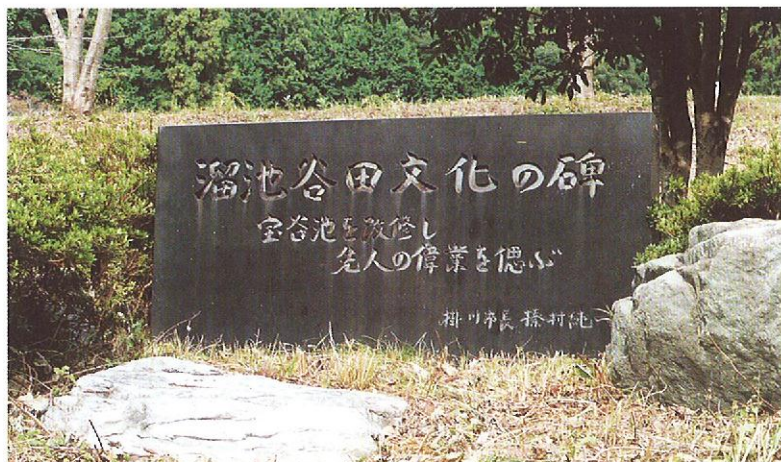 溜池谷田文化の碑
宝谷池を改修し
先人の偉業を偲ぶ
掛川市長 榛村純一